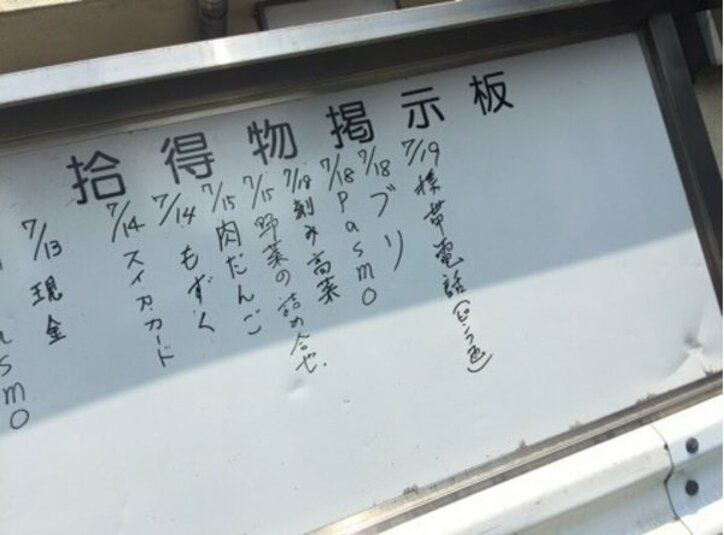 拾得物掲示板
7/19携帯電話(ピンク色)
7/18ブリ
7/18Pasmo
7/18刻み高菜
7/15野菜の詰め合せ
7/15肉だんご
7/14もずく
7/14スイカカード
7/13現金
asmo